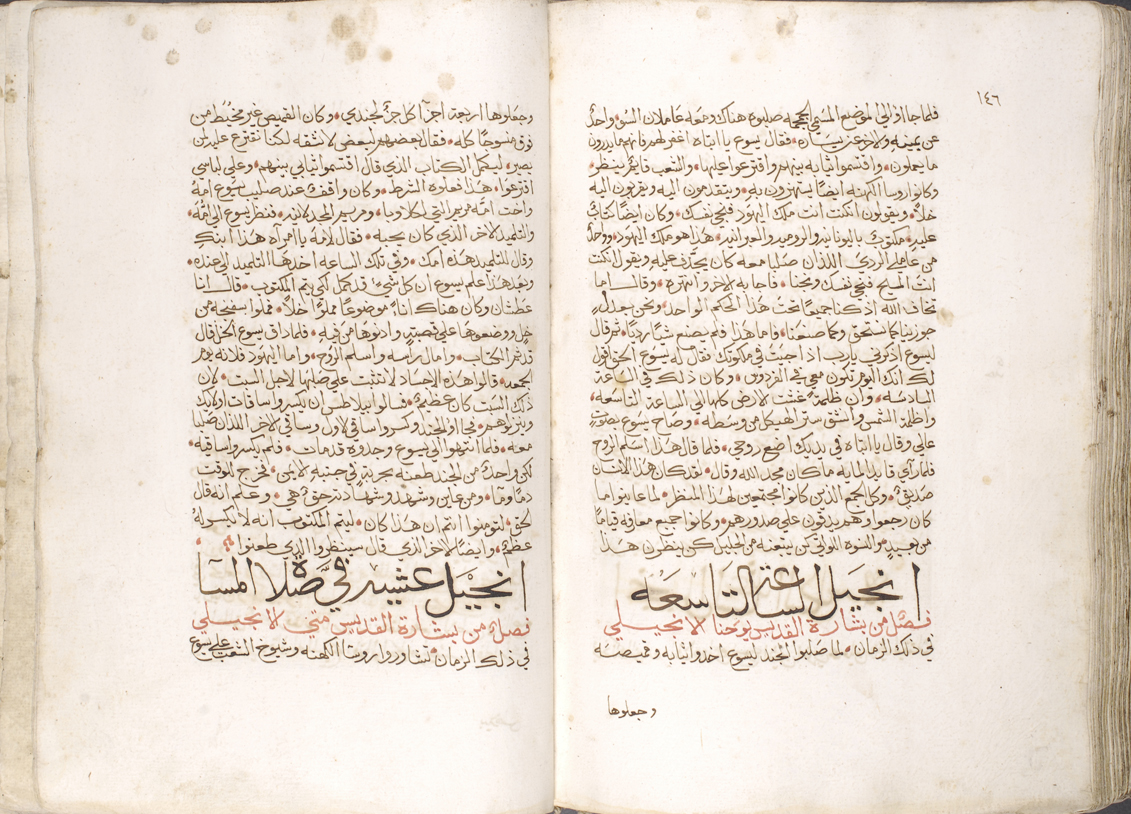 ١٤٦
فلما جاا و الي الموضع المسمي الجمجمه صلبوه هناك ومعه عاملان السو واحداً
عن يمينه والاخر عن يساره فقال يسوع يا ابتاه اغفر لهم فانهم ما يدرون
ما يعملون واقتسموا ثيابه بينهم واقترعوا عليها والشعب قايم ينظر
وكانوا روسا الكهنه ايضاً يستهزون به ويتقدمون اليه ويقربون اليه
خلاً ويقولون ان كنت انت ملك اليهود فنجي نفسك وكان ايضاً كتاب
عليه مكتوب باليونانيه والروميه والعبرانيه هذا هو ملك اليهود وواحد
من عاملي الردي اللذان صلبا معه كان يجدف عليه ويقول ان كنت
انت المسيح فنجي نفسك ونجنا فاجابه الاخر وانتهره وقال اما
تخاف الله اذ كنا جميعاً تحت هذا الحكم الواحد ونحن بعدل
جوزينا كما نستحق وكما صنعنا فاما هذا فلم يصنع شياً رديًا ثم قال
ليسوع اذكرني يا رب اذا جيت في ملكوتك فقال له يسوع الحق اقول
لك انك اليوم تكون معي في الفردوس وكان ذلك في الساعة
السادسه وان ظلمة غشت الارض كلها الي الساعة التاسعه
واظلمة الشمس وانشق ستر الهيكل من وسطه وصاح يسوع بصوت
عالي وقال يا ابتاه في يديك اضع روحي فلما قال هذا اسلم الروح
فلما راي قايد المايه ما كان مجد الله وقال لقد كان هذا الانسان
صديق وكل الجمع الذين كانوا مجتمعين لهذا المنظر لما عاينوا ما
كان رجعوا وهم يدقون علي صدورهم وكانوا جميع معارفه قياماً
من بعيد والنسوة اللواتي كن يتبعنه من الجليل كن ينظرون هذا
انجيل الساعة التاسعه
فصل من بشارة القديس يوحنا الانجيلي
في ذلك الزمان لما صلبوا الجند ليسوع اخذوا ثيابه وقميصه
وجعلوها
وجعلوها اربعة اجزا كل جزء لجندي وكان القميص غير مخيط من
فوق منسوجًا كله فقال بعضهم لبعض لا نشقه لكنا نقترع عليه لمن
يصير ليكمل الكتاب الذي قال اقتسموا ثيابي بينهم وعلي لباسي
اقترعوا هذا فعلوه الشرط وكان واقف عند صليب يسوع امه
واخت امه مريم التي لكلاوبا ومريم المجدلانيه فنظر يسوع الي امه
والتلميذ الاخر الذي كان يحبه فقال لامه يا امراه هذا ابنك
وقال للتلميذ هذه امك وفي تلك الساعه اخذها التلميذ الي عنده
وبعد هذا علم يسوع ان كل شي قد كمل لكي يتم المكتوب قال انا
عطشان وكان هناك اناء موضوعاً مملوًا خلاً فملوا سفنجه من
خل ووضعوها علي قصبه وادنوها من فيه فلما ذاق يسوع الخل قال
قد تم الكتاب وامال راسه واسلم الروح واما اليهود فلانه يوم
الجمعه قالوا هذه الاجساد لا تثبت علي صلبها لاجل السبت لان
ذلك السبت كان عظيم فسالوا بيلاطس ان يكسروا ساقات اوليك
وينزلوهم فجاوا الجند وكسروا ساقي الاول وساقي الاخر اللذان صلبا
معه فلما انتهوا الي يسوع وجدوه قد مات فلم يكسروا ساقيه
لكن واحد من الجند طعنه بحربة في جنبه الايمن فخرج للوقت
دم وما ومن عاين وشهد وشهادته حق هي وعلم انه قال
لحق لتومنوا انتم ان هذا كان ليتم المكتوب انه لا يكسر له
عظم وايضاً الاخر الذي قال سينظروا الذي طعنوا
انجيل عشيه في صلاة المسا
فصل من بشارة القديس متي الانجيلي
في ذلك الزمان تشاوروا روسا الكهنه وشيوخ الشعب علي يسوع